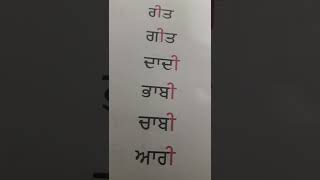 ਰੀਤ
ਗੀਤ
ਦਾਦੀ
ਭਾਬੀ
ਚਾਬੀ
ਆਰੀ